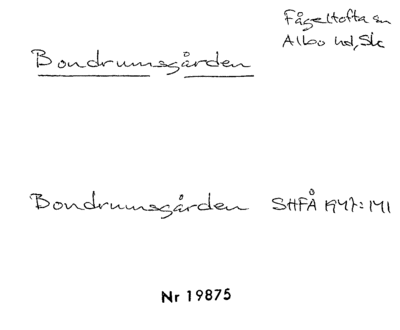 Fågeltofta sn
Albo hd, Sk
Bondrumsgården
Bondrumsgården SHFÅ 1947:141
Nr 19875